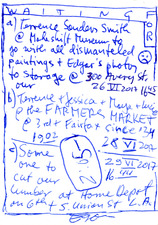 WAITING
FOR
a) Terrence Sanders Smith
@ Makeshift Museum to
go with all dismantelled
paintings + Edgar's photos
to Storage @ 300 Avery st.
our 26 VI 2017 1645
b) Terrence + Jessica + Maya + Luie
@ the FARMERS MARKET
@ 3rd & Fairfax since 1934
1902 28 VI 2017
c) Some 29 VI 2017
one to 16
cut our
lumber at Home Depot
on 6th & S Union St L.A.